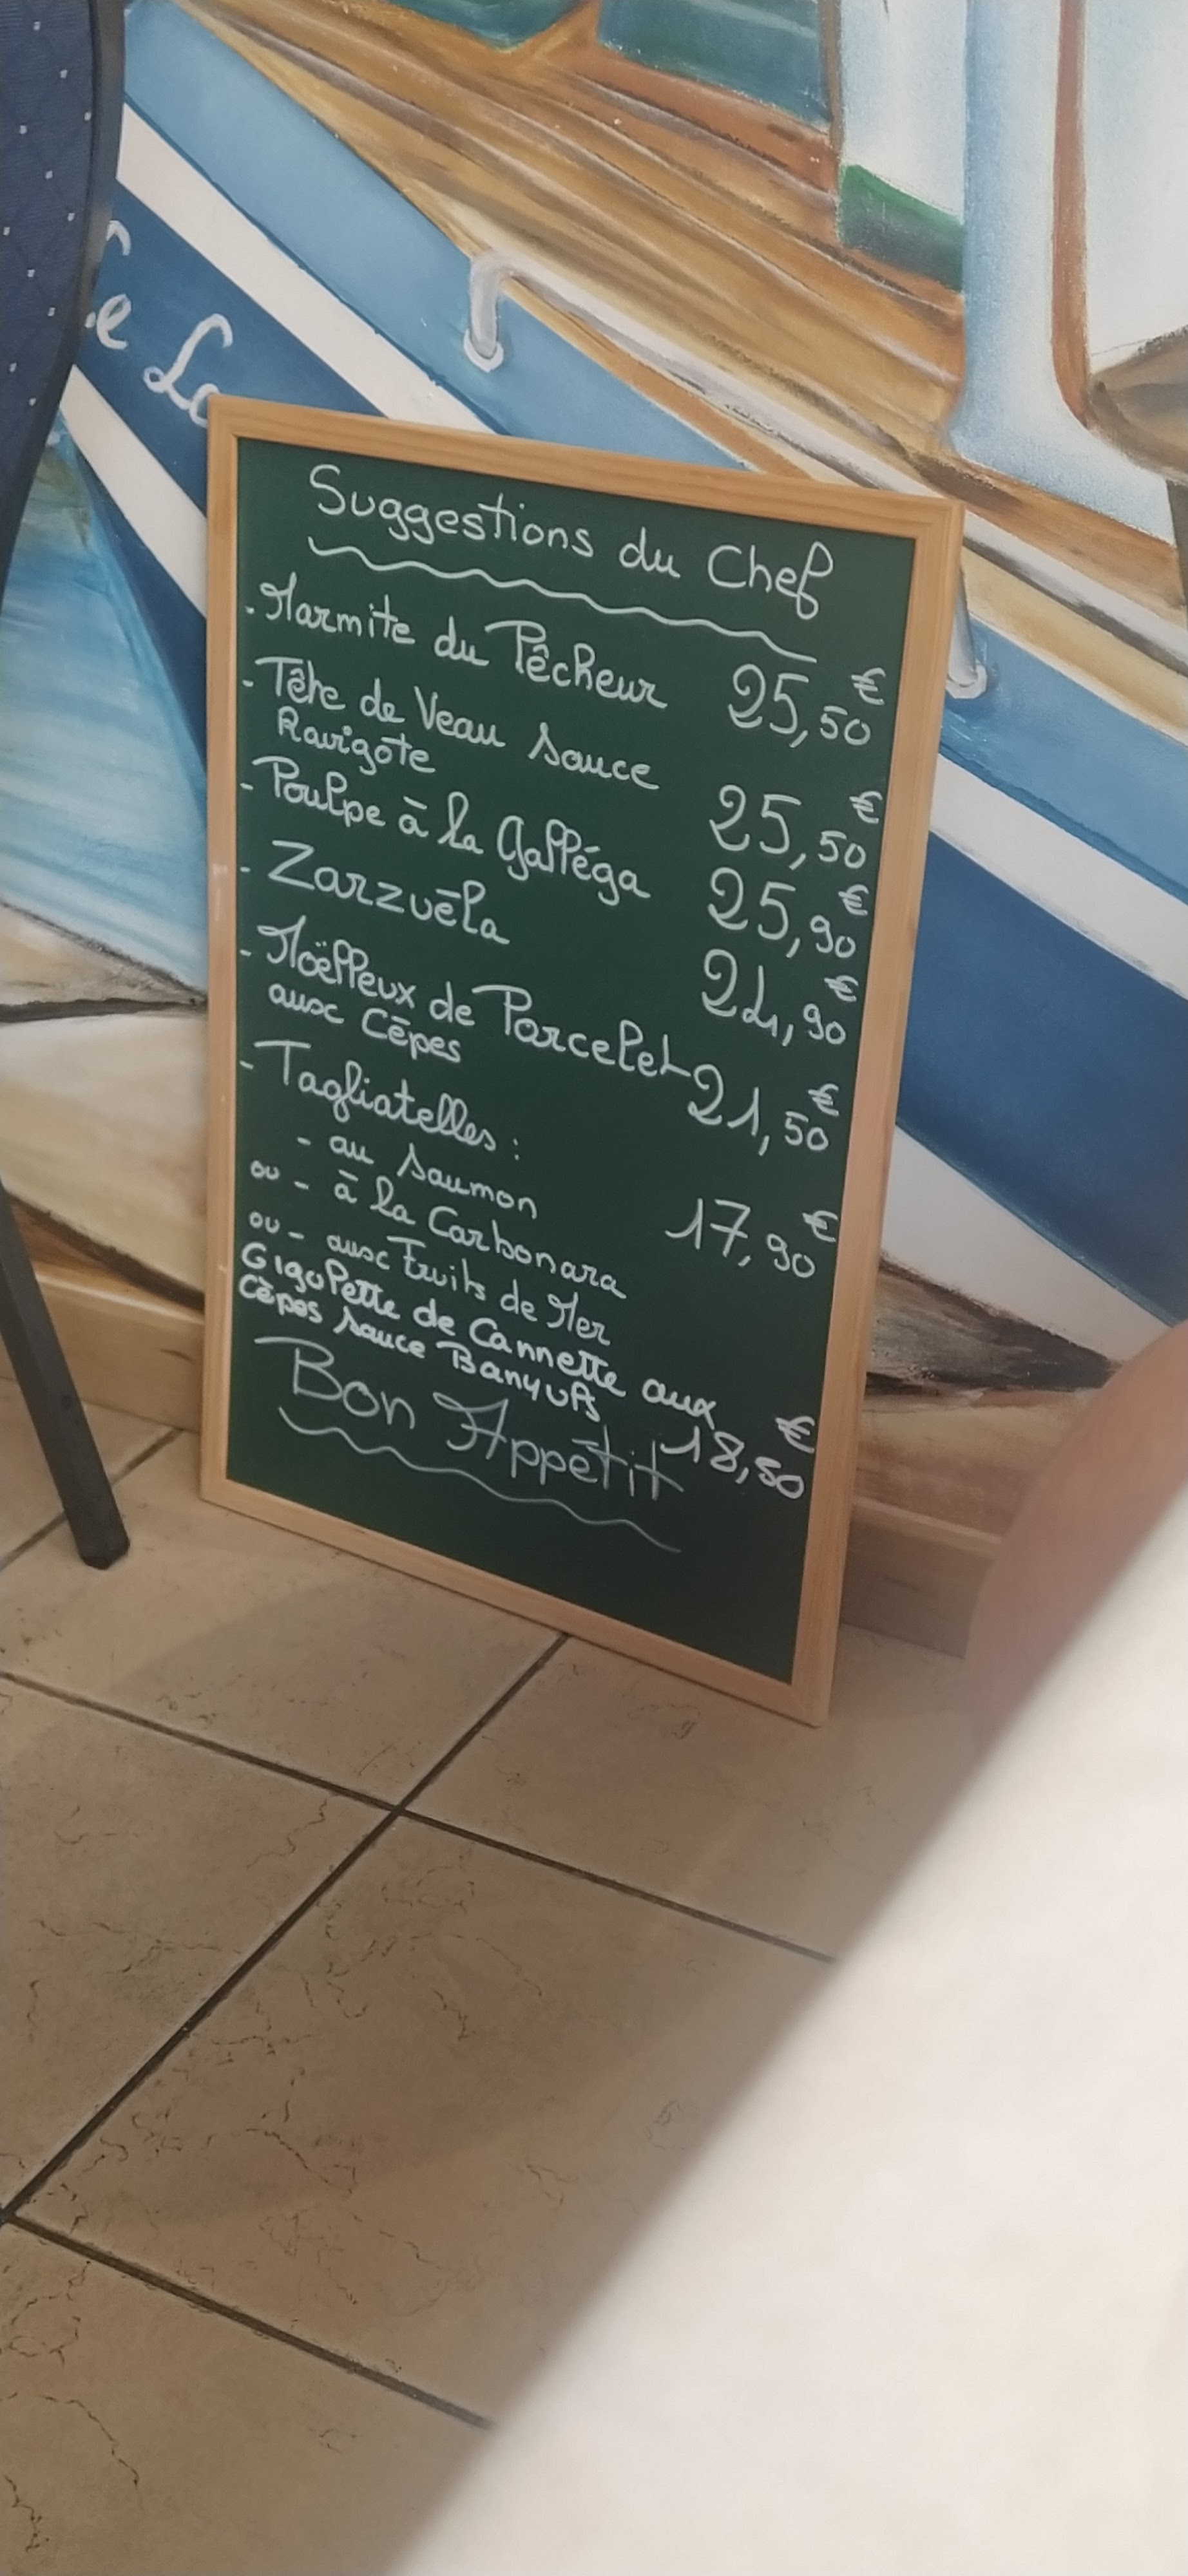 e La
Suggestions du Chef
- Marmite du Pêcheur 25,50€
- Tête de Veau sauce
Ravigote 25,50€
- Poulpe à la Galléga 25,90€
- Zarzuēla 24,90€
- Moëlleux de Porcelet
aux Cèpes 21,50€
- Tagliatelles :
- au saumon 17,90€
ou - à la Carbonara
ou - aux Fruits de Mer
Gigolette de Cannette aux
Cèpes sauce Banyuls 18,50€
Bon Appétit